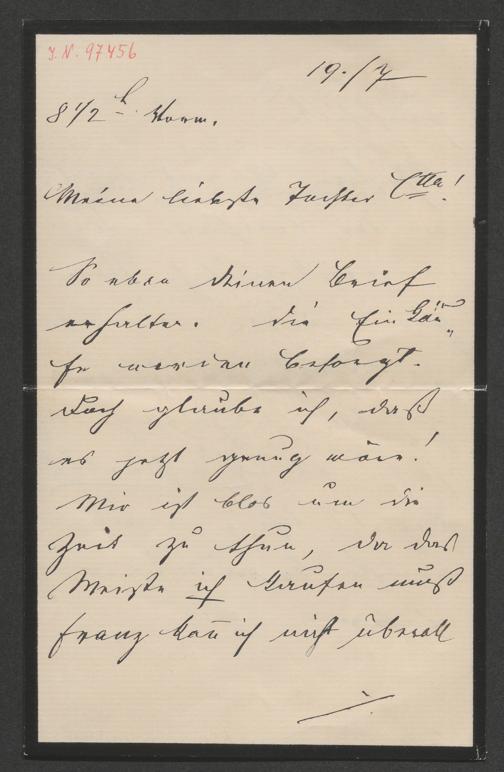 J.N. 97456
19./7
8 1/2 h Vorm.
Meine liebste Tochter C^tta!
So eben Deinen Brief
erhalten. Die Einkäu„
fe werden besorgt.
Doch glaube ich, daß
es jetzt genug wäre!
Mir ist blos um die
Zeit zu thun, da das
Meiste ich kaufen muß
Franz kan̄ ich nicht überall
./.